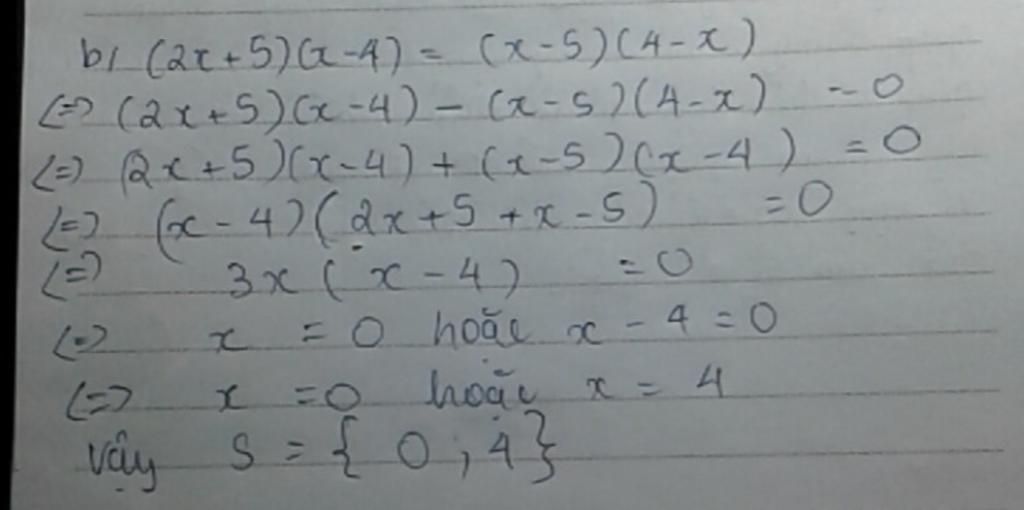 b/ (2x+5)(x-4) = (x-5)(4-x)
(=) (2x+5)(x-4) - (x-5)(4-x) = 0
(=) (2x+5)(x-4) + (x-5)(x-4) = 0
(=) (x-4)(2x+5+x-5) = 0
(=) 3x(x-4) = 0
(=) x = 0 hoặc x - 4 = 0
(=) x = 0 hoặc x = 4
vậy S = { 0 ; 4 }